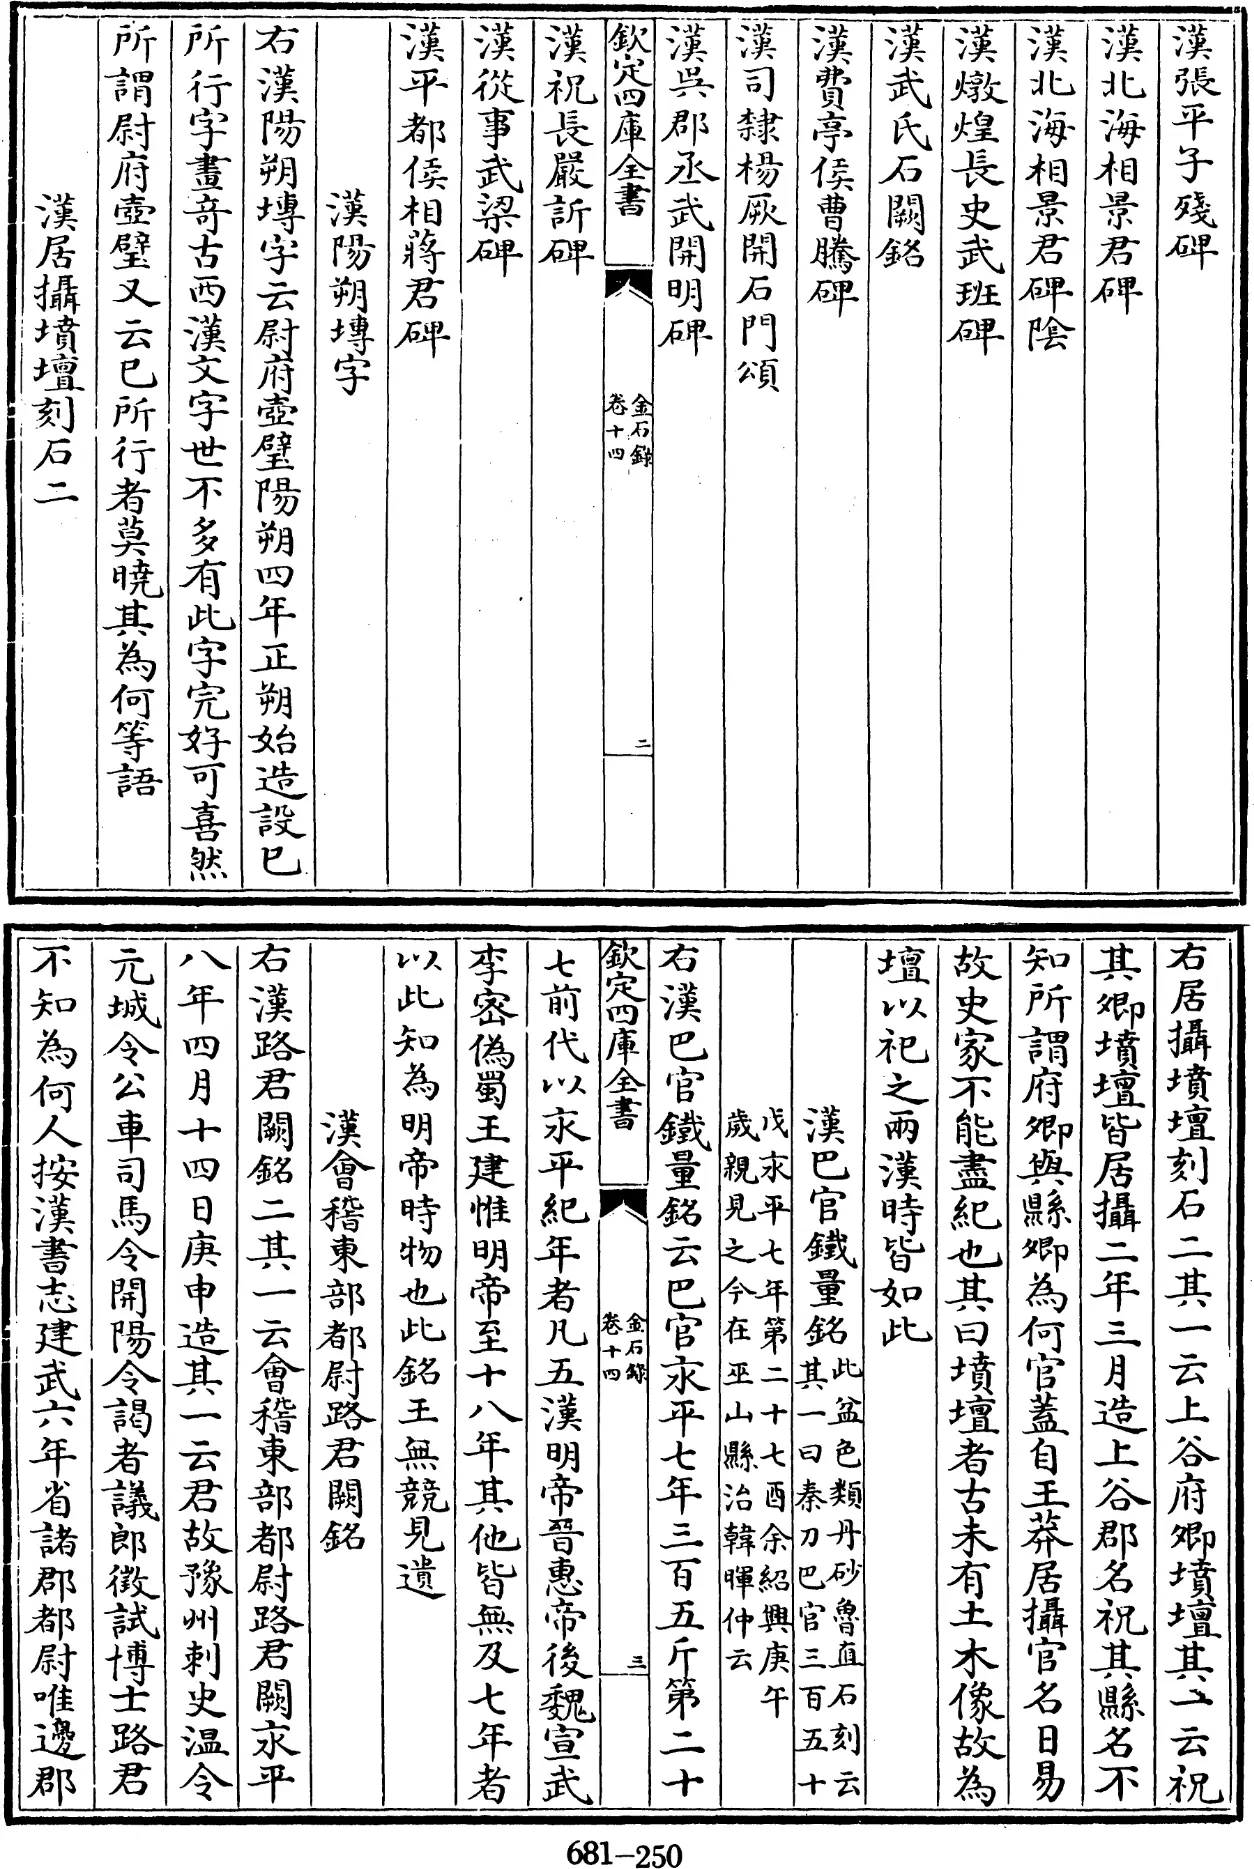 漢張平子殘碑
漢北海相景君碑
漢北海相景君碑陰
漢燉煌長史武班碑
漢武氏石闕銘
漢費亭侯曹騰碑
漢司隸楊厥開石門頌
漢吳郡丞武開明碑
欽定四庫全書
金石錄
卷十四
二
漢祝長嚴訢碑
漢從事武梁碑
漢平都侯相蔣君碑
漢陽朔塼字
右漢陽朔塼字云尉府壺壁陽朔四年正朔始造設已
所行字畫奇古西漢文字世不多有此字完好可喜然
所謂尉府壺壁又云已所行者莫曉其為何等語
漢居攝墳壇刻石二
右居攝墳壇刻石二其一云上谷府卿墳壇其一云祝
其卿墳壇皆居攝二年三月造上谷郡名祝其縣名不
知所謂府卿與縣卿為何官蓋自王莽居攝官名日易
故史家不能盡紀也其曰墳壇者古未有土木像故為
壇以祀之兩漢時皆如此
漢巴官鐵量銘此盆色類丹砂魯直石刻云
其一曰秦刀巴官三百五十
戊永平七年第二十七酉余紹興庚午
歲親見之今在巫山縣治韓暉仲云
右漢巴官鐵量銘云巴官永平七年三百五斤第二十
欽定四庫全書
金石錄
卷十四
三
七前代以永平紀年者凡五漢明帝晉惠帝後魏宣武
李密偽蜀王建惟明帝至十八年其他皆無及七年者
以此知為明帝時物也此銘王無競見遺
漢會稽東部都尉路君闕銘
右漢路君闕銘二其一云會稽東部都尉路君闕永平
八年四月十四日庚申造其一云君故豫州刺史溫令
元城令公車司馬令開陽令謁者議郎徵試博士路君
不知為何人按漢書志建武六年省諸郡都尉唯邊郡
681-250